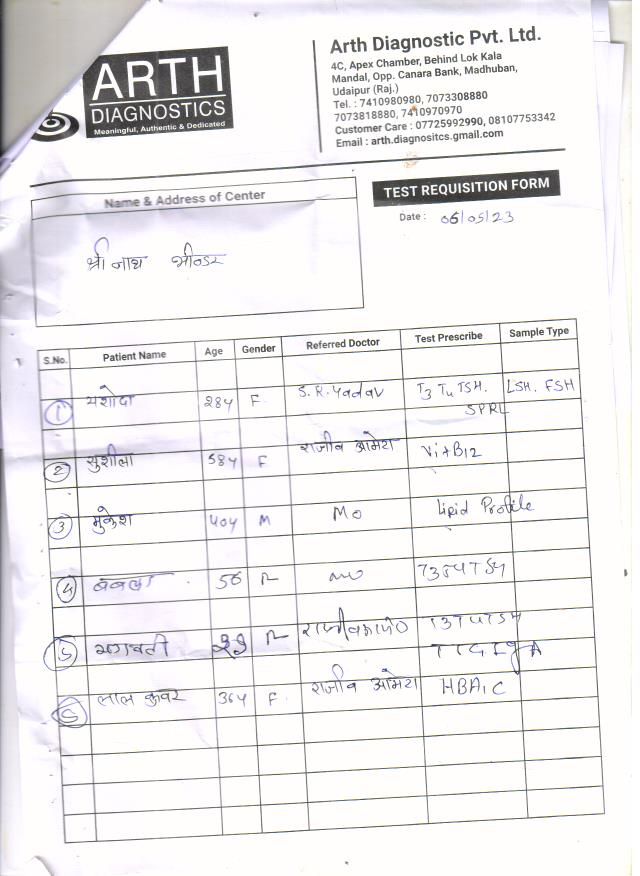 ARTH
DIAGNOSTICS
Meaningful, Authentic & Dedicated
Arth Diagnostic Pvt. Ltd.
4C, Apex Chamber, Behind Lok Kala
Mandal, Opp. Canara Bank, Madhuban,
Udaipur (Raj.)
Tel. : 7410980980, 7073308880
7073818880, 7410970970
Customer Care : 07725992990, 08107753342
Email : arth.diagnositcs.gmail.com
TEST REQUISITION FORM
Name & Address of Center
Date : 06/05/23
श्री नाथ भीण्डर
S.No. Patient Name Age Gender Referred Doctor Test Prescribe Sample Type
1 यशोदा 28y F S.R. Yadav T3 T4 TSH. LSH. FSH
SPRL
2 सुशीला 58y F राजीव आमेटा Vit B12
3 मुकेश 40y M Mo Lipid Profile
4 56 Mo
5 भगवती T3T4TSH
TTG IgA
लाल कुवर 36y F राजीव आमेटा HBA1C